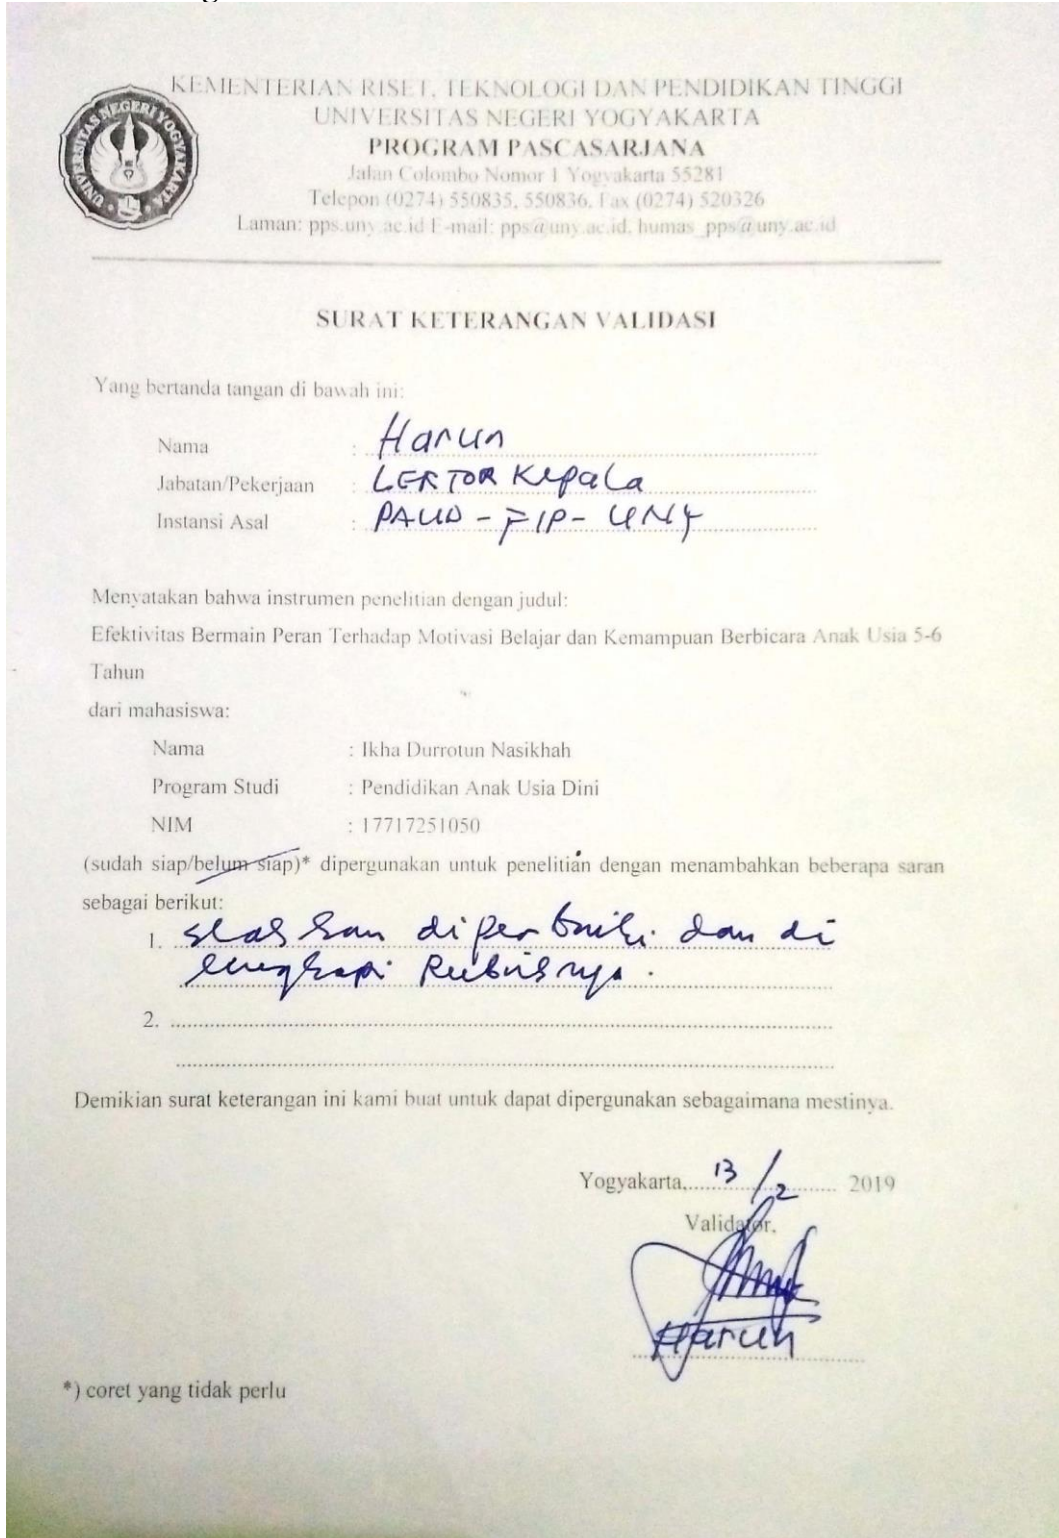 UNIVERSITAS NEGERI YOGYAKARTA
KEMENTERIAN RISET, TEKNOLOGI DAN PENDIDIKAN TINGGI
UNIVERSITAS NEGERI YOGYAKARTA
PROGRAM PASCASARJANA
Jalan Colombo Nomor 1 Yogyakarta 55281
Telepon (0274) 550835, 550836, Fax (0274) 520326
Laman: pps.uny.ac.id E-mail: pps@uny.ac.id, humas_pps@uny.ac.id
SURAT KETERANGAN VALIDASI
Yang bertanda tangan di bawah ini:
Nama : Harun
Jabatan/Pekerjaan : LEKTOR Kepala
Instansi Asal : PAUD - FIP - UNY
Menyatakan bahwa instrumen penelitian dengan judul:
Efektivitas Bermain Peran Terhadap Motivasi Belajar dan Kemampuan Berbicara Anak Usia 5-6
Tahun
dari mahasiswa:
Nama : Ikha Durrotun Nasikhah
Program Studi : Pendidikan Anak Usia Dini
NIM : 17717251050
(sudah siap/belum siap)* dipergunakan untuk penelitian dengan menambahkan beberapa saran
sebagai berikut:
1. silahkan diperbaiki dan di
lengkapi Rubriknya.
2.
Demikian surat keterangan ini kami buat untuk dapat dipergunakan sebagaimana mestinya.
Yogyakarta, 13/2 2019
Validator,
Harun
*) coret yang tidak perlu